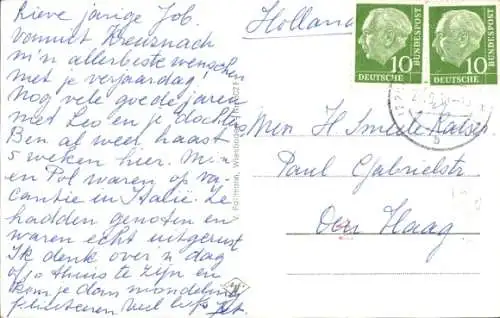 Lieve jarige Job.
vanuit Kreuznach
m'n allerbeste wenschen
met je verjaardag!
Nog vele goede jaren
met Leo en je dochter
Ben al weer haast
5 weken hier. M'n
en Pol waren op va-
cantie in Italië. Ze
hadden genoten en
waren echt uitgerust
Ik denk over 'n dag
of 10 thuis te zijn en
kom je dan mondeling
feliciteren Veel liefs
Holland
10
DEUTSCHE
BUNDESPOST
10
DEUTSCHE
BUNDESPOST
b
Mevr. H Smeele Kaiser
Paul Gabrielstr.
Den Haag
Wiesbaden